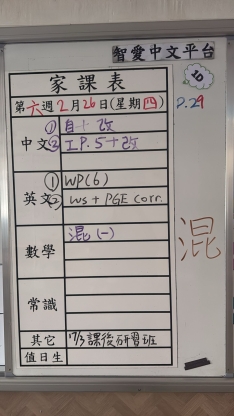 智愛中文平台
家課表
10
第六週2月26日(星期四)
P.29
中文 ① 自十改
② I.P.5+改
英文 ① WP(6)
② WS + PGE corr.
數學 混(一)
混
常識
其它 17/3課後研習班
值日生